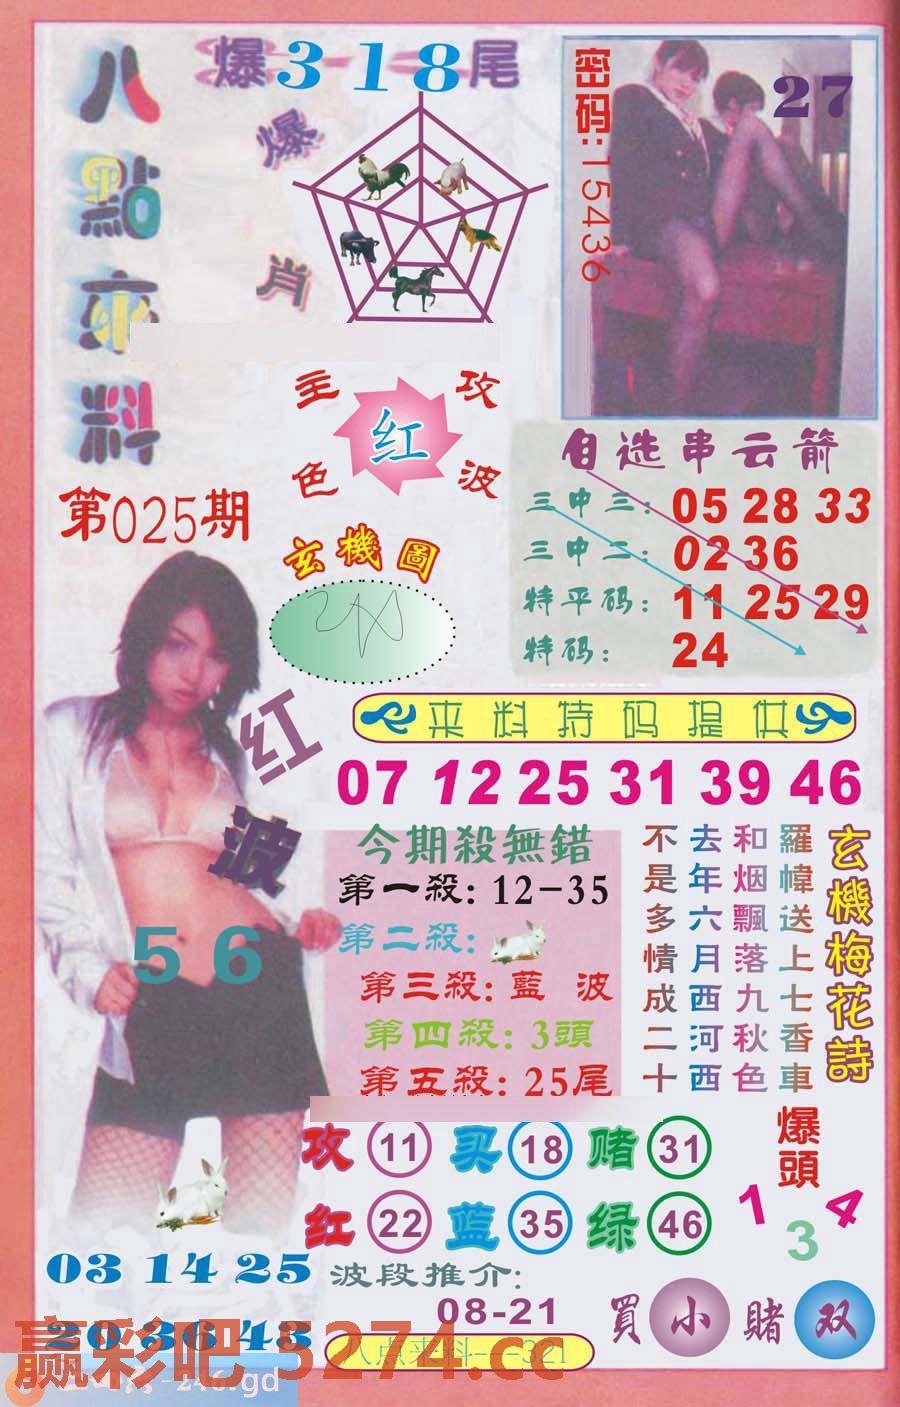 八點來料
爆318尾
爆肖
密码:15436
27
主攻
红
色波
第025期
玄機圖
自选串云箭
三中三: 05 28 33
三中二: 02 36
特平码: 11 25 29
特码: 24
来料特码提供
07 12 25 31 39 46
红波
56
今期殺無錯
第一殺: 12-35
第二殺:
第三殺: 藍 波
第四殺: 3頭
第五殺: 25尾
玄機梅花詩
羅幃送上七香車
和烟飄落九秋色
去年六月西河西
不是多情成二十
攻 11 买 18 赌 31
红 22 蓝 35 绿 46
爆頭
1 3 4
03 14 25
波段推介:
08-21
買小賭双
八点来料-- 321
赢彩吧 5274.cc
-246.gd